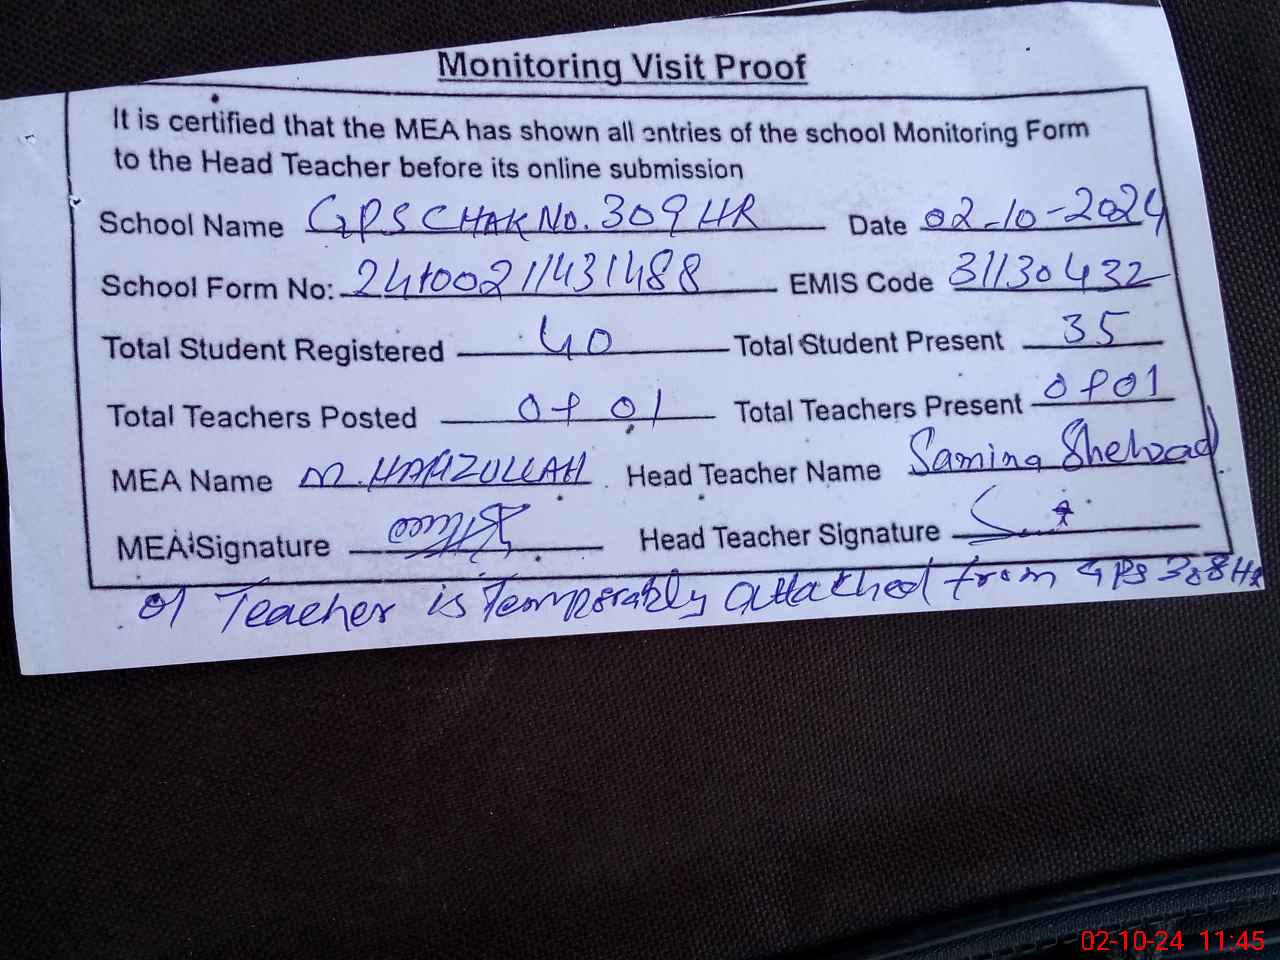 Monitoring Visit Proof
It is certified that the MEA has shown all entries of the school Monitoring Form
to the Head Teacher before its online submission
School Name GPS CHAK No. 309 HR Date 02-10-2024
School Form No: 24100211431488 EMIS Code 31130432
Total Student Registered 40 Total Student Present 35
Total Teachers Posted 0+01 Total Teachers Present 0+01
MEA Name M. HAFIZULLAH Head Teacher Name Samina Shehzad
MEA Signature Head Teacher Signature
01 Teacher is Temporably attatched from GPS 308 HR
02-10-24 11:45